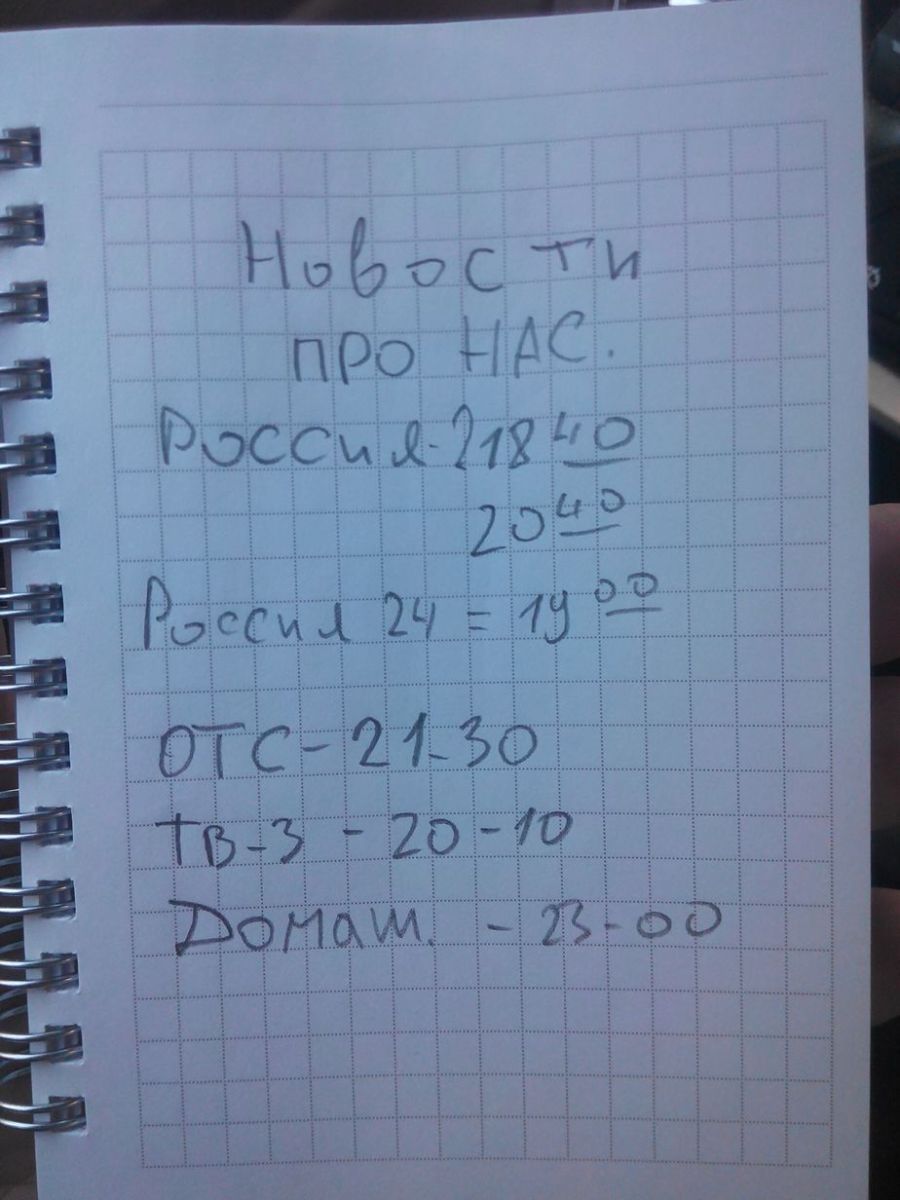 Новости
про НАС.
Россия-2 18 40
20 40
Россия 24 = 19 00
ОТС - 21-30
тв-3 - 20-10
Домаш. - 23-00